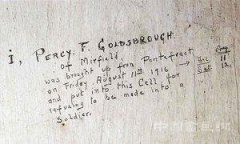 i, PERCY. F. GOLDSBROUGH.
of Mirfield,
was brought up from Pontefract
on Friday, August 11th 1916
and put into this Cell for
refusing to be made into a
Soldier.